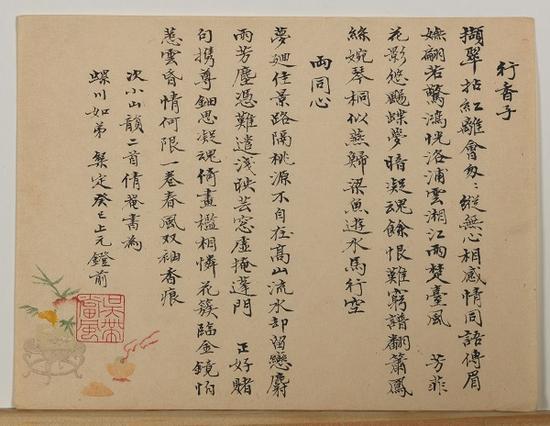 行香子
擷翠拈紅離會匆〻縱無心相感情同語傳眉
嫵翩若驚鴻恍洛浦雲湘江雨楚臺風 芳菲
花影悠颺蝶夢暗凝魂餘恨難窮譜翻簫鳳
絲婉琴桐似燕歸梁魚遊水馬行空
兩同心
夢迴佳景路隔桃源不自在高山流水却留戀麝
雨芳塵憑難遣淺映芸窓虛掩蓬門 正好賭
句携尊鈿思凝魂倚畫檻相憐花簇臨金鏡怕
惹雲昏情何限一卷春風双袖香痕
次小山韻二首倩菴書為
螺川如弟 粲定癸巳上元鐙前
吳帶當風